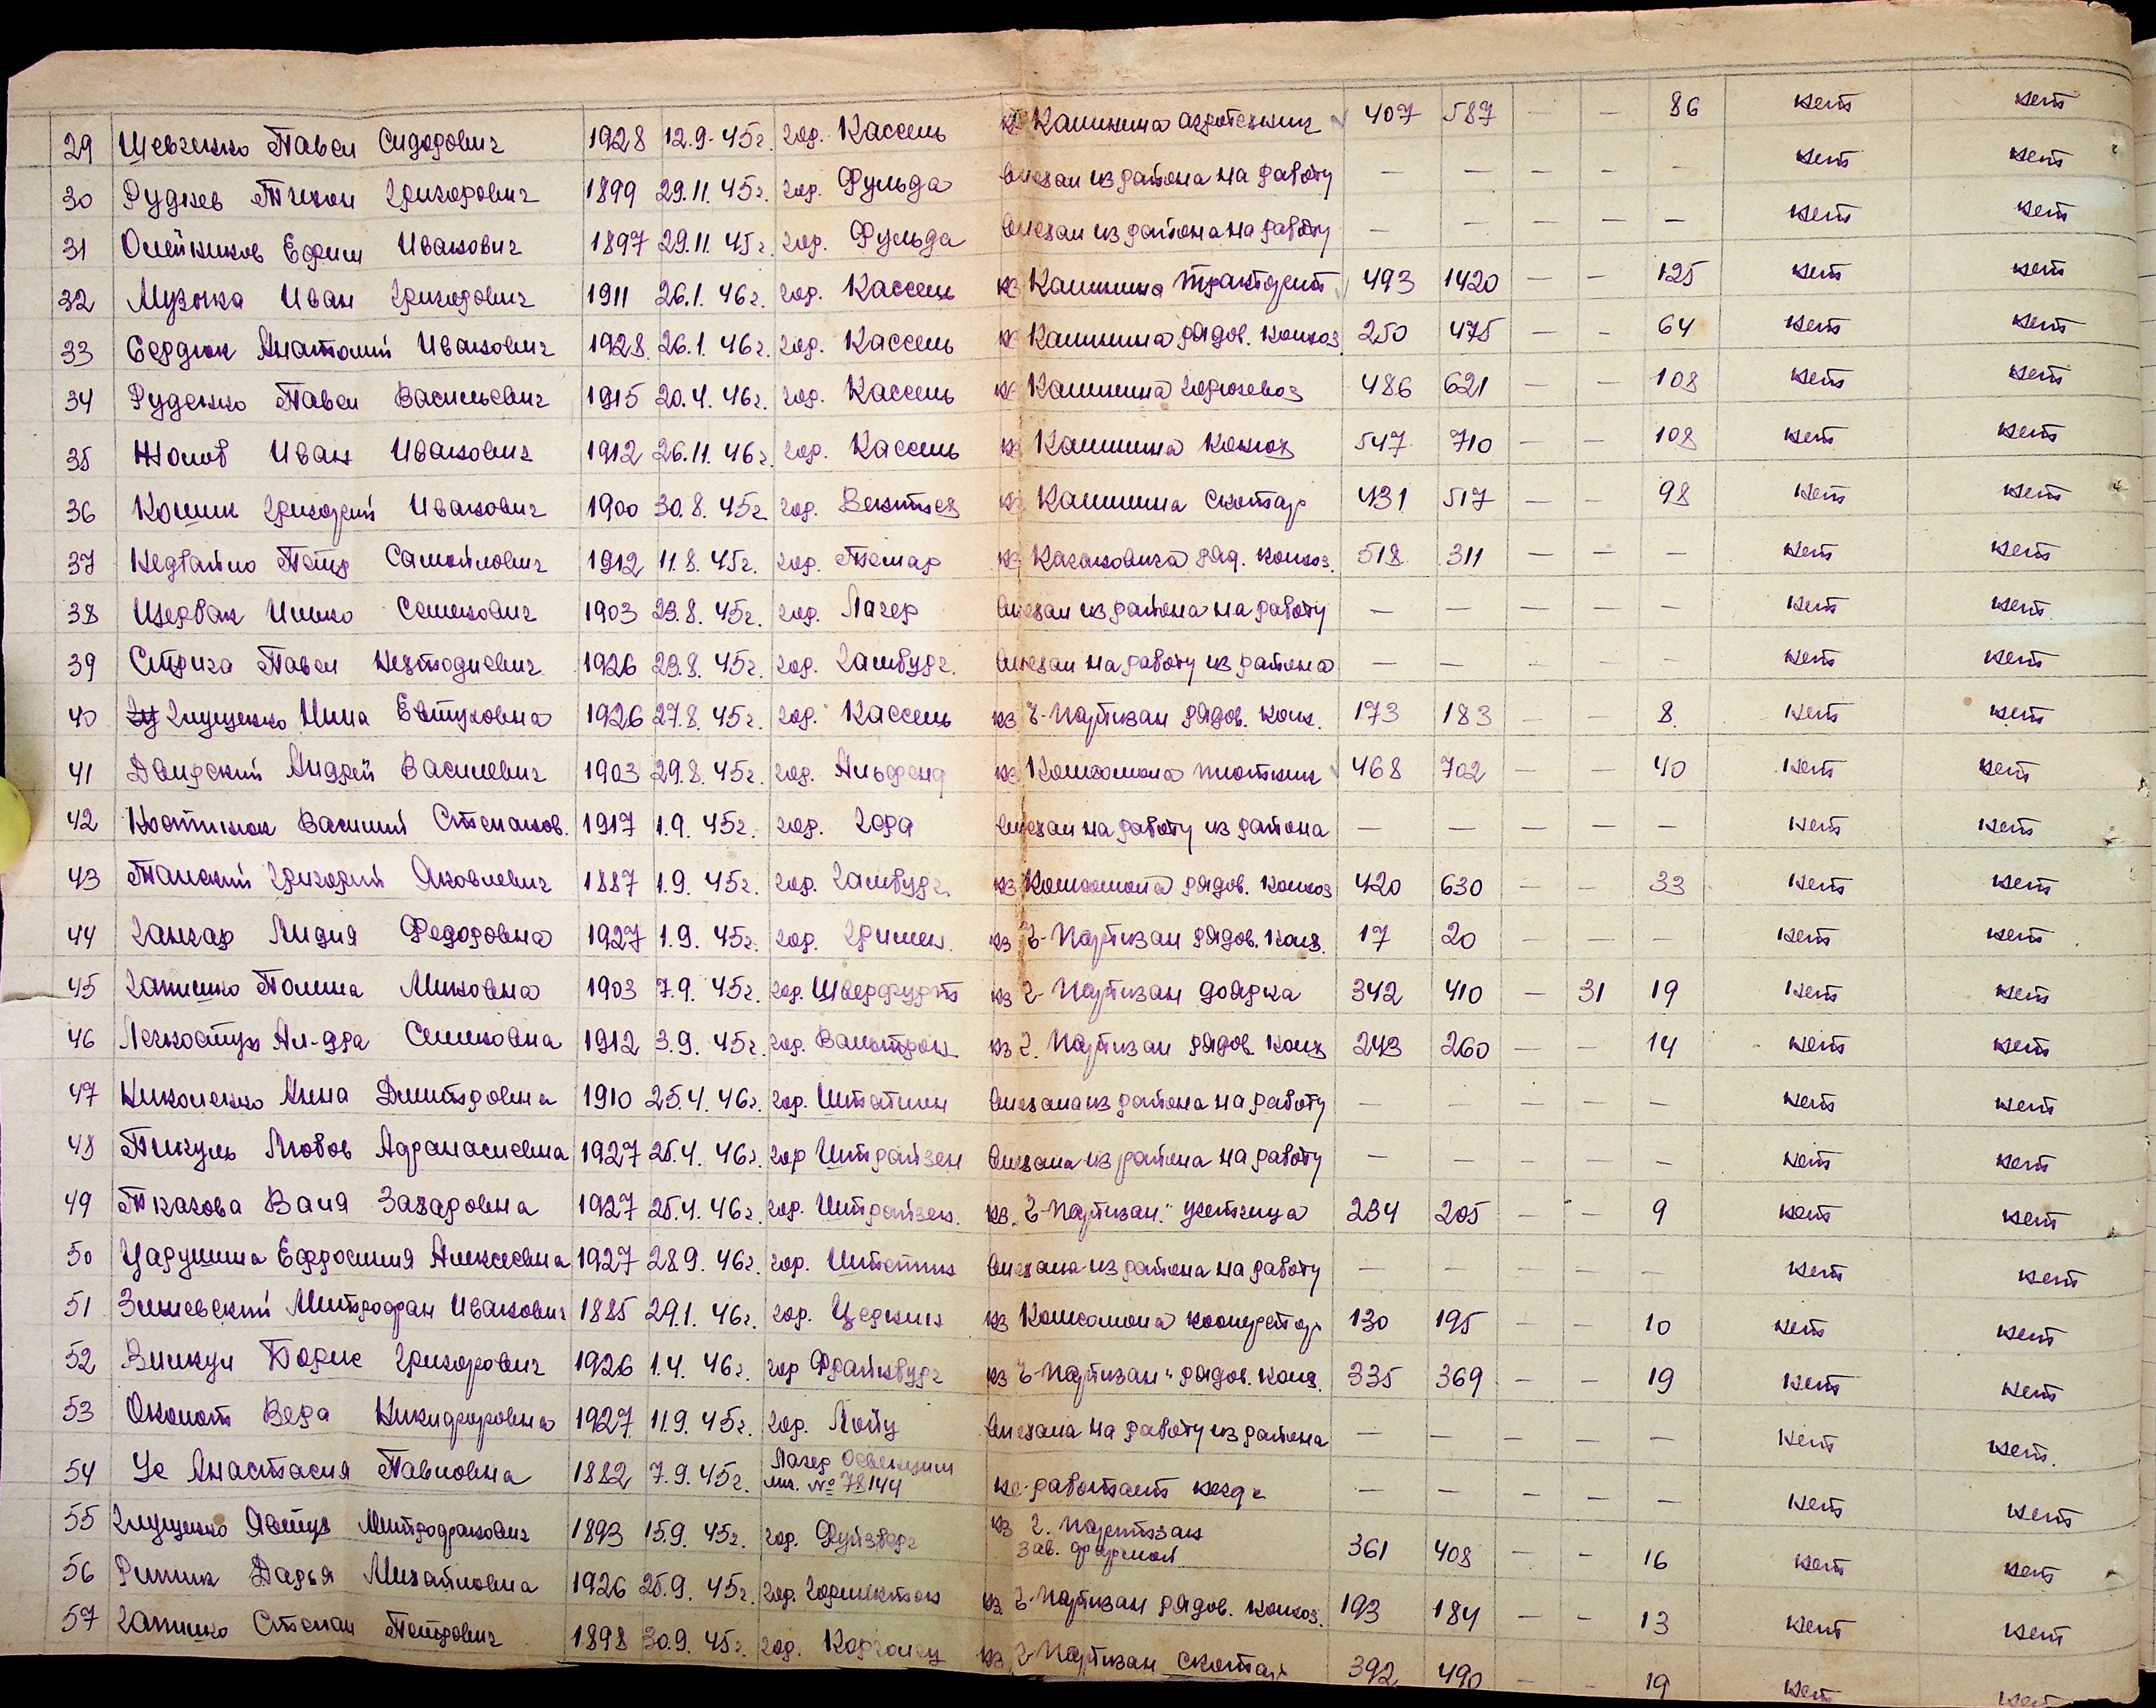 29 Шевченко Павел Сидорович 1928 12.9.45г. гор. Кассель кз Калинина агротехник 407 587 — — 86 нет нет
30 Руднев Тихон Григорович 1899 29.11.45г. гор. Фульда Выехал из района на работу — — — — — нет нет
31 Олейников Ефим Иванович 1897 29.11.45г. гор. Фульда Выехал из района на работу — — — — — нет нет
32 Музыка Иван Григорович 1911 26.1.46г. гор. Кассель кз Калинина тракторист 493 1420 — — 125 нет нет
33 Сердюк Анатолий Иванович 1928 26.1.46г. гор. Кассель кз Калинина рядов. колхоз. 250 475 — — 64 нет нет
34 Руденко Павел Васильевич 1915 20.4.46г. гор. Кассель кз Калинина горючевоз 486 621 — — 108 нет нет
35 Жолов Иван Иванович 1912 26.11.46г. гор. Кассель кз Калинина конюх 547 710 — — 108 нет нет
36 Кошик Григорий Иванович 1900 30.8.45г. гор. кз Калинина скотар 431 517 — — 98 нет нет
37 Недбайло Петр Самойлович 1912 11.8.45г. гор. Темар кз Кагановича ряд. колхоз. 518 311 — — — нет нет
38 Щербак Илько Семенович 1903 23.8.45г. гор. Лагер Выехал из района на работу — — — — — нет нет
39 Стрига Павел 1926 23.8.45г. гор. Гамбург. Выехал на работу из района — — — — — нет нет
40 Глущенко Нина Евтуховна 1926 27.8.45г. гор. Кассель кз Ч-Партизан рядов. колх. 173 183 — — 8 нет нет
41 Андрей Василевич 1903 29.8.45г. гор. кз Комсомола плотник 468 702 — — 40 нет нет
42 Костинюк Василий Степанов. 1917 1.9.45г. гор. Гера Выехал на работу из района — — — — — нет нет
43 Григорий Яковлевич 1887 1.9.45г. гор. Гамбург. кз Комсомола рядов. колхоз 420 630 — — 33 нет нет
44 Ганжар Лидия Федоровна 1927 1.9.45г. гор. Гримен. кз Ч-Партизан рядов. колх. 17 20 — — — нет нет
45 Гапишко Полина Миновна 1903 7.9.45г. гор. Швейфурт кз Ч-Партизан доярка 342 410 — 31 19 нет нет
46 Легкоступ Ал-дра Семеновна 1912 3.9.45г. гор. Вальтрон кз Ч. Партизан рядов. колх 243 260 — — 14 нет нет
47 Николенко Анна Дмитровна 1910 25.4.46г. гор. Штетин Выехала из района на работу — — — — — нет нет
48 Пикуль Любов Афанасиевна 1927 25.4.46г. гор Штрайзен Выехала из района на работу — — — — — нет нет
49 Ткахова Валя Захаровна 1927 25.4.46г. гор. Штрайзен. кз. Ч-Партизан." учетчица 234 205 — — 9 нет нет
50 Царушина Ефросиния Алексеевна 1927 28.9.46г. гор. Штетин Выехала из района на работу — — — — — нет нет
51 Зишевский Митрофан Иванович 1885 29.1.46г. гор. Церкин кз Комсомола кооператор 130 195 — — 10 нет нет
52 Борис Григорович 1926 1.4.46г. гор Фрайнбург кз Ч-Партизан" рядов. колх. 335 369 — — 19 нет нет
53 Околот Вера Никифоровна 1927 11.9.45г. гор. Лойц Выехала на работу из района — — — — — нет нет
54 Ус Анастасия Павловна 1882 7.9.45г. Лагер Освенцим
лич. № 78144 не работает нездe — — — — — нет нет
55 Глущенко Явтух Митрофанович 1893 15.9.45г. гор. Дуйзберг кз Ч. Партизан
зав. фермой 361 408 — — 16 нет нет
56 Ришик Дарья Михайловна 1926 25.9.45г. гор. кз. Ч-Партизан рядов. колхоз. 193 184 — — 13 нет нет
57 Гапишко Степан Петрович 1898 30.9.45г. гор. кз Ч-Партизан скотар 392 490 — — 19 нет нет